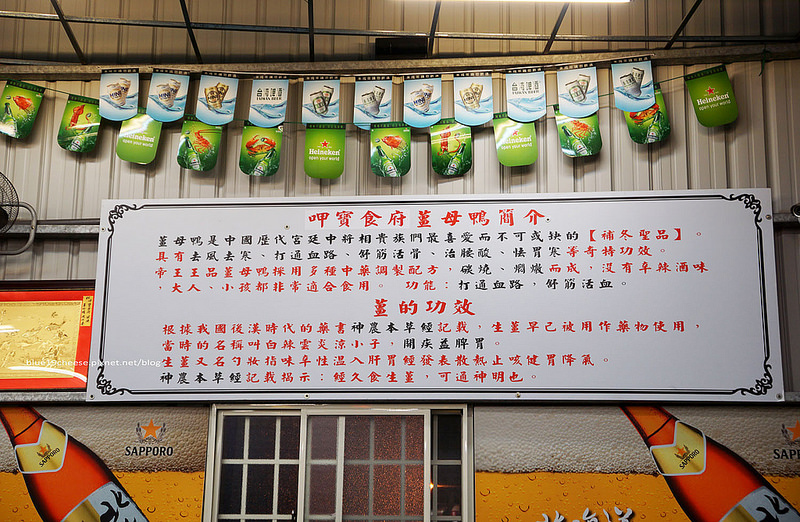 台灣啤酒
TAIWAN BEER
台灣啤酒
Heineken
open your world
Heineken
open your world
Heineken
open your world
Heineken
open your world
呷寶食府薑母鴨簡介.
薑母鴨是中國歷代宮廷中將相貴族們最喜愛而不可或缺的【補冬聖品】。
具有去風去寒、打通血路、舒筋活骨、治腰酸、怯胃寒等奇特功效。
帝王王品薑母鴨採用多種中藥調製配方，碳燒、燜燉而成，沒有辛辣酒味
，大人、小孩都非常適合食用。 功能：打通血路，舒筋活血。
薑的功效
根據我國後漢時代的藥書神農本草經記載，生薑早已被用作藥物使用，
當時的名稱叫白辣雲炎涼小子，開疾益脾胃。
生薑又名勻妝指味辛性溫入肝胃經發表散熱止咳健胃降氣。
神農本草經記載揭示：經久食生薑，可通神明也。
blue1scheese.pixnet.net/blog
SAPPORO
SAPPORO